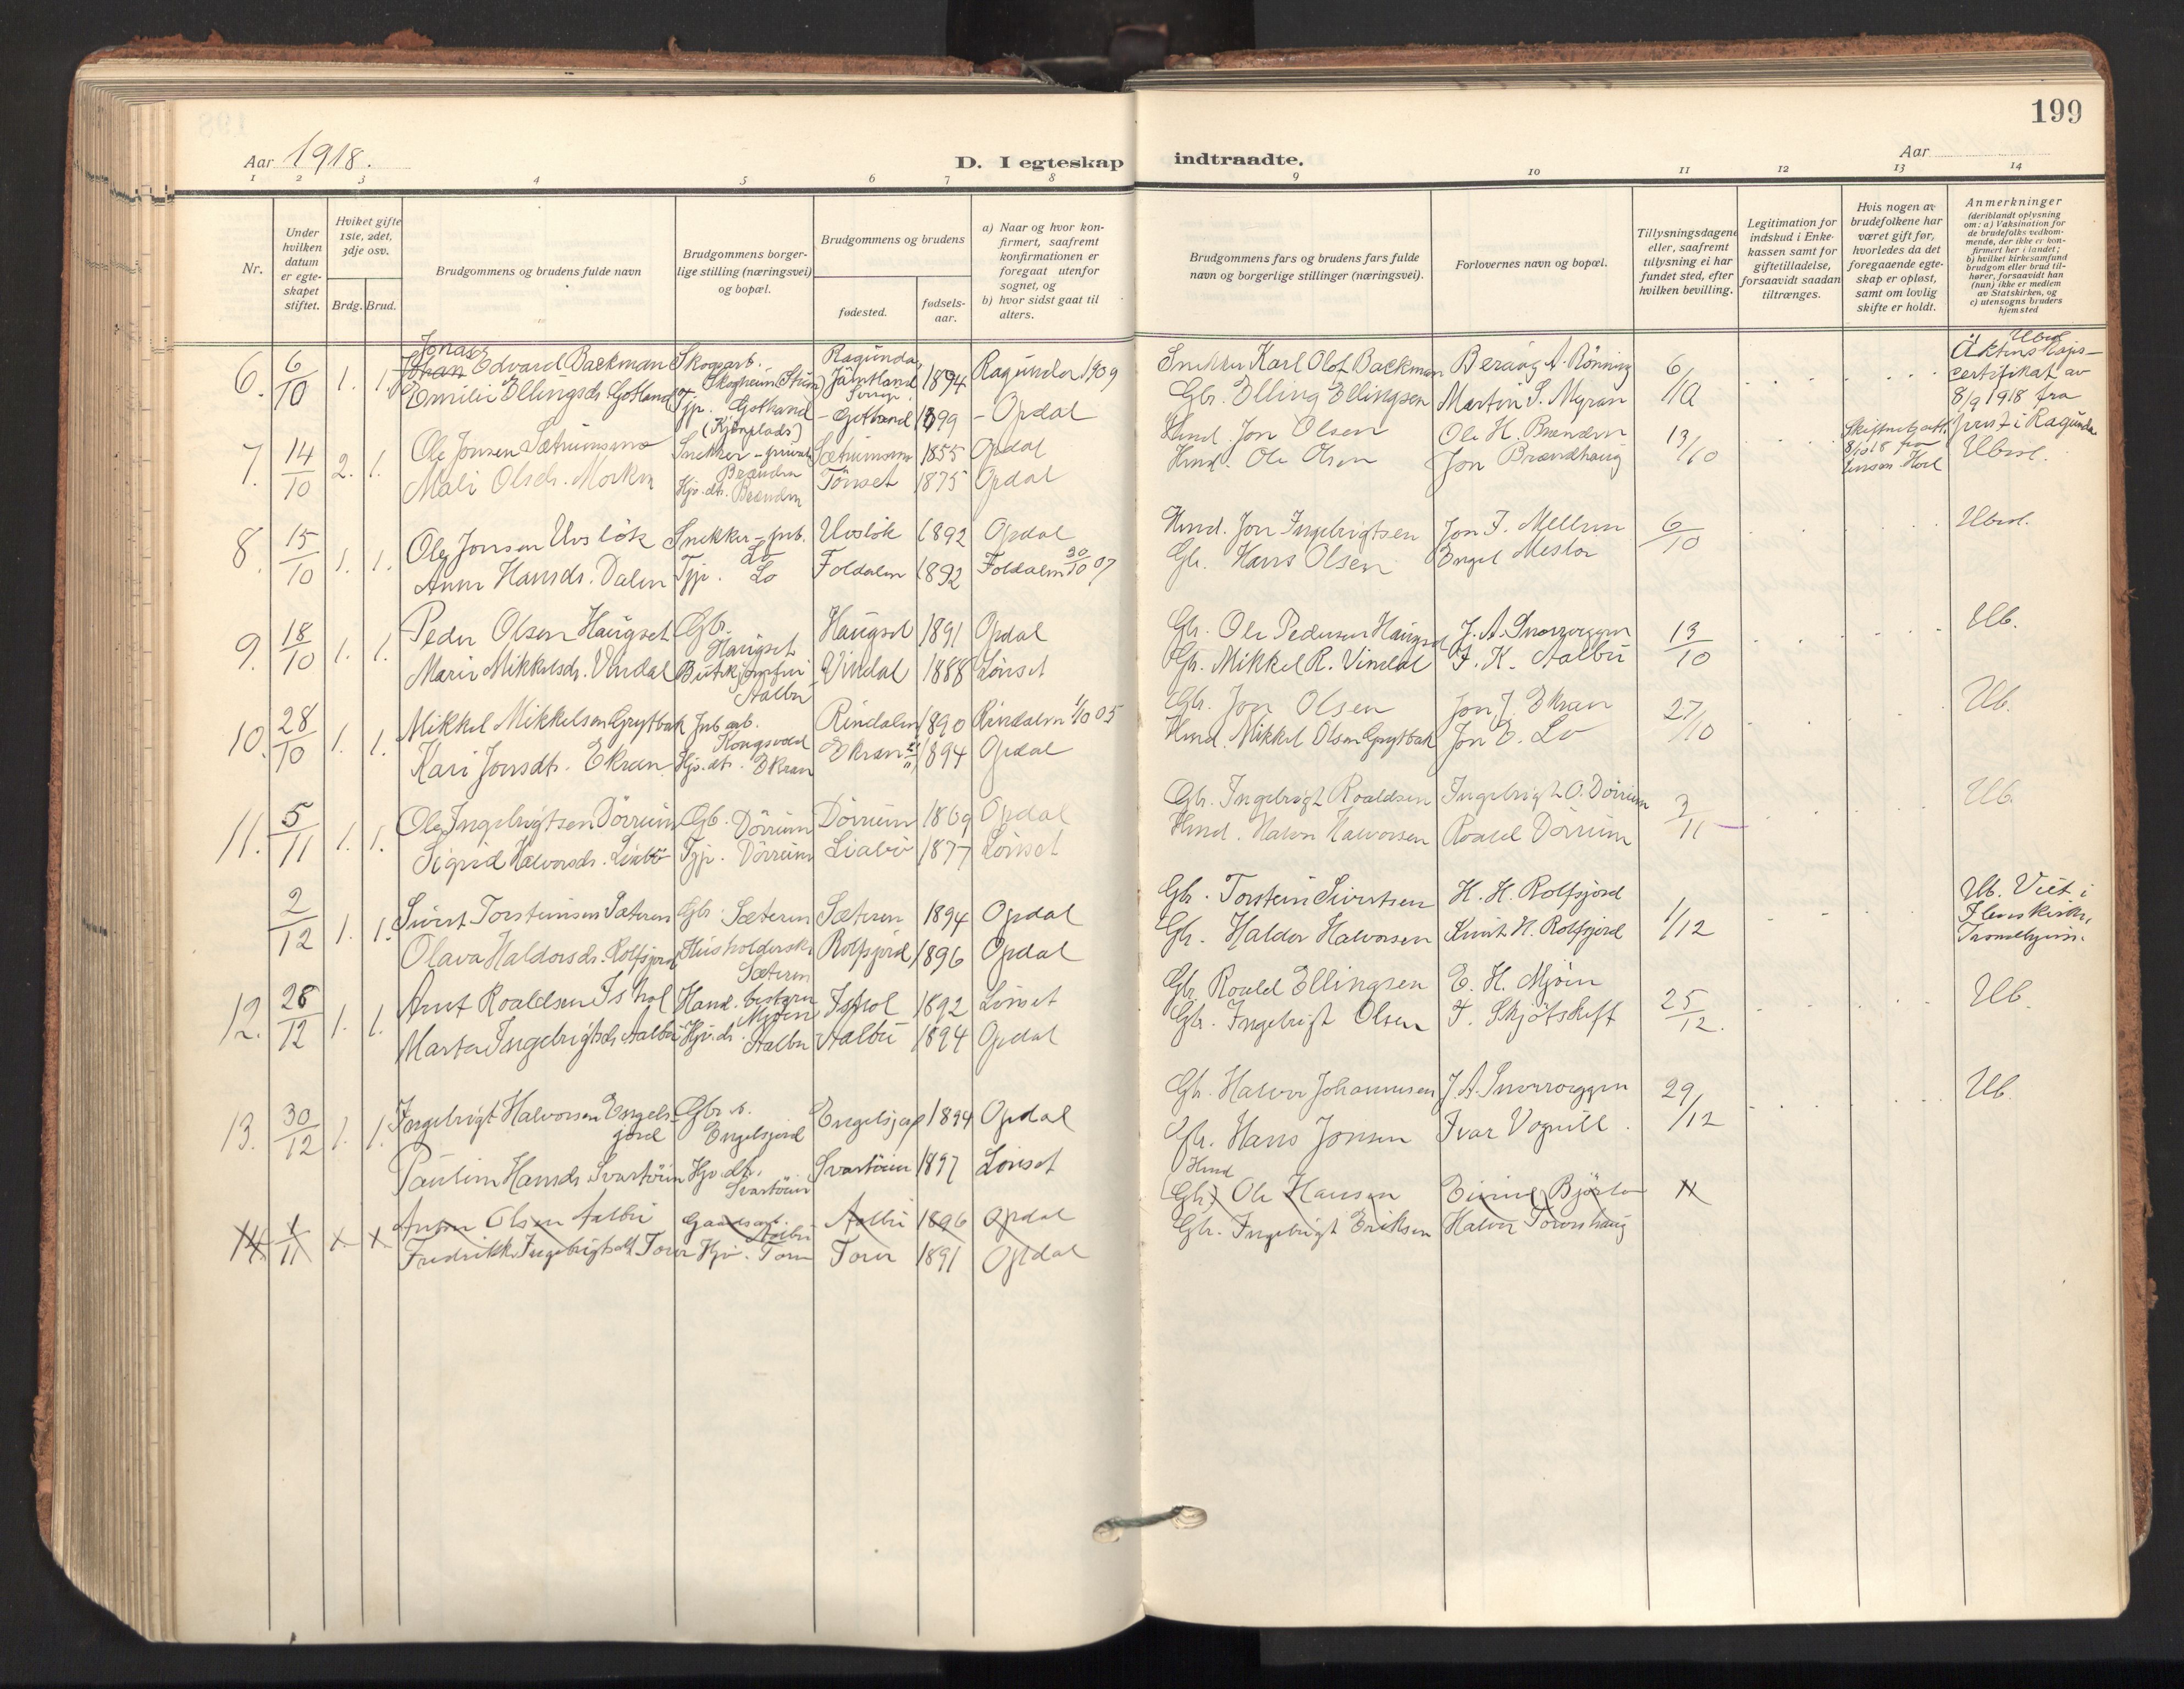 199
Aar 1918.
D. I egteskap indtraadte.
Aar
1 2 3 4 5 6 7 8 9 10 11 12 13 14
Nr.
Under hvilken datum er egteskapet stiftet.
Hviket gifte 1ste, 2det, 3dje osv.
Brdg. Brud.
Brudgommens og brudens fulde navn
Brudgommens borgerlige stilling (næringsvei) og bopæl.
Brudgommens og brudens
fødested.
fødselsaar.
a) Naar og hvor konfirmert, saafremt konfirmationen er foregaat utenfor sognet, og
b) hvor sidst gaat til alters.
Brudgommens fars og brudens fars fulde navn og borgerlige stillinger (næringsvei).
Forlovernes navn og bopæl.
Tillysningsdagene eller, saafremt tillysning ei har fundet sted, efter hvilken bevilling.
Legitimation for indskud i Enkekassen samt for giftetilladelse, forsaavidt saadan tiltrænges.
Hvis nogen av brudefolkene har været gift før, hvorledes da det foregaaende egteskap er opløst, samt om lovlig skifte er holdt.
Anmerkninger
(deriblandt oplysning om: a) Vaksination for de brudefolks vedkommende, der ikke er konfirmert her i landet;
b) hvilket kirkesamfund brudgom eller brud tilhører, forsaavidt han (hun) ikke er medlem av Statskirken, og
c) utensogns bruders hjemsted
6. 6/10 1. 1. Jonas Johan Edvard Backman Skogsarb. Skogheim Ragunda, Jämtland 1894 Ragunda 1909 Snekker Karl Olof Backman Beraug A. Rönning 6/10
Emilie Ellingsdr. Gotland Tjp. Gotland Gotland 1899 - Opdal Gbr. Elling Ellingsen Martin S. Myran
Äktenskapscertifikat av 8/9 1918 fra prest i Ragunda
7. 14/10 2. 1. Ole Jonsen Sætrumsmo Snekker (Kjönplads) Brænden Sætrumsmo 1855 Opdal Hmd. Jon Olsen Ole H. Brænden 13/10 Skifteattest 8/10 18 fra
Mali Olsdr. Morken Hjv. dtr. Brænden Tönset 1875 Opdal Hmd. Ole Olsen Jon Brændhaug
8. 15/10 1. 1. Ole Jonsen Uvslök Snekker Lo Uvslök 1892 Opdal Hmd. Jon Ingebrigtsen Jon J. Mellem 6/10
Anne Hansdr. Dalen Tjp. Lo Foldalen 1892 Foldalen 30/10 07 Gbr. Hans Olsen Engel Meslo
9. 18/10 1. 1. Peder Olsen Haugset Gbr. Haugset Haugset 1891 Opdal Gbr. Ole Pedersen Haugset J. A. Snoreggen 13/10 Ub.
Marie Mikkelsdr. Vindal Butikjomfru Aalbu Vindal 1888 Lönset Gbr. Mikkel R. Vindal J. K. Aalbu
10. 28/10 1. 1. Mikkel Mikkelsen Grytbak Jnb. arb. Kongsvold Rindalen 1890 Rindalen 1/10 05 Gbr. Jon Olsen Jon J. Ekran 27/10 Ub.
Kari Jonsdtr. Ekran Hjv. dtr. Ekran Ekran 1894 Opdal Hmd. Mikkel Olsen Grytbak Jon E. Lo
11. 5/11 1. 1. Ole Ingebrigtsen Dörrum Gb. Dörrum Dörrum 1869 Opdal Gbr. Ingebrigt Roaldsen Ingebrigt O. Dörrum 3/11 Ub.
Sigrid Halvorsdr. Liabö Tjp. Dörrum Liabö 1877 Lönset Hmd. Halvor Halvorsen Roald Dörrum
2/12 1. 1. Sivert Torsteinsen Sæteren Gbr. Sæteren Sæteren 1894 Opdal Gbr. Torstein Sivertsen H. H. Rolfsjord 1/12 Ub. Viet i Ilenskirke, Trondhjem.
Olava Haldorsdr. Rolfsjord Husholderske Sæteren Rolfsjord 1896 Opdal Gbr. Haldor Halvorsen Knut H. Rolfsjord
12. 28/12 1. 1. Arnt Roaldsen Ishol Hand. bestyrer Mjöen Ishol 1892 Lönset Gbr. Roald Ellingsen E. H. Mjöen 25/12. Ub.
Marta Ingebrigtsdr. Aalbu Hjv. dr. Aalbu Aalbu 1894 Opdal Gbr. Ingebrigt Olsen T. Skjötskift
13. 30/12 1. 1. Ingebrigt Halvorsen Engelsjord Gbr. s. Engelsjord Engelsjord 1894 Opdal Gbr. Halvor Johannesen J. A. Snoreggen 29/12 Ub.
Pauline Hansdr. Svartöien Hjv. dtr. Svartöien Svartöien 1897 Lönset Gbr. Hans Jonsen Ivar Vognill
14. 1/11 Olsen Aalbu Gaardsarb. Aalbu Aalbu 1896 Opdal Hmd Gbr. Ole Hansen Bjørlo
Fredrikke Ingebrigtsdt. Torve Hjv. Torve Torve 1891 Opdal Gbr. Ingebrigt Eriksen Halvor Torveshaug